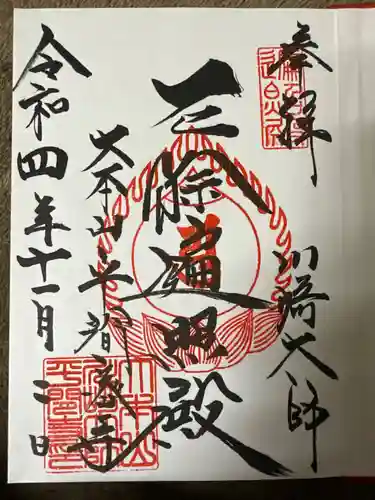 奉拝
川崎大師
遍照殿
大本山平間寺
令和四年十一月二日